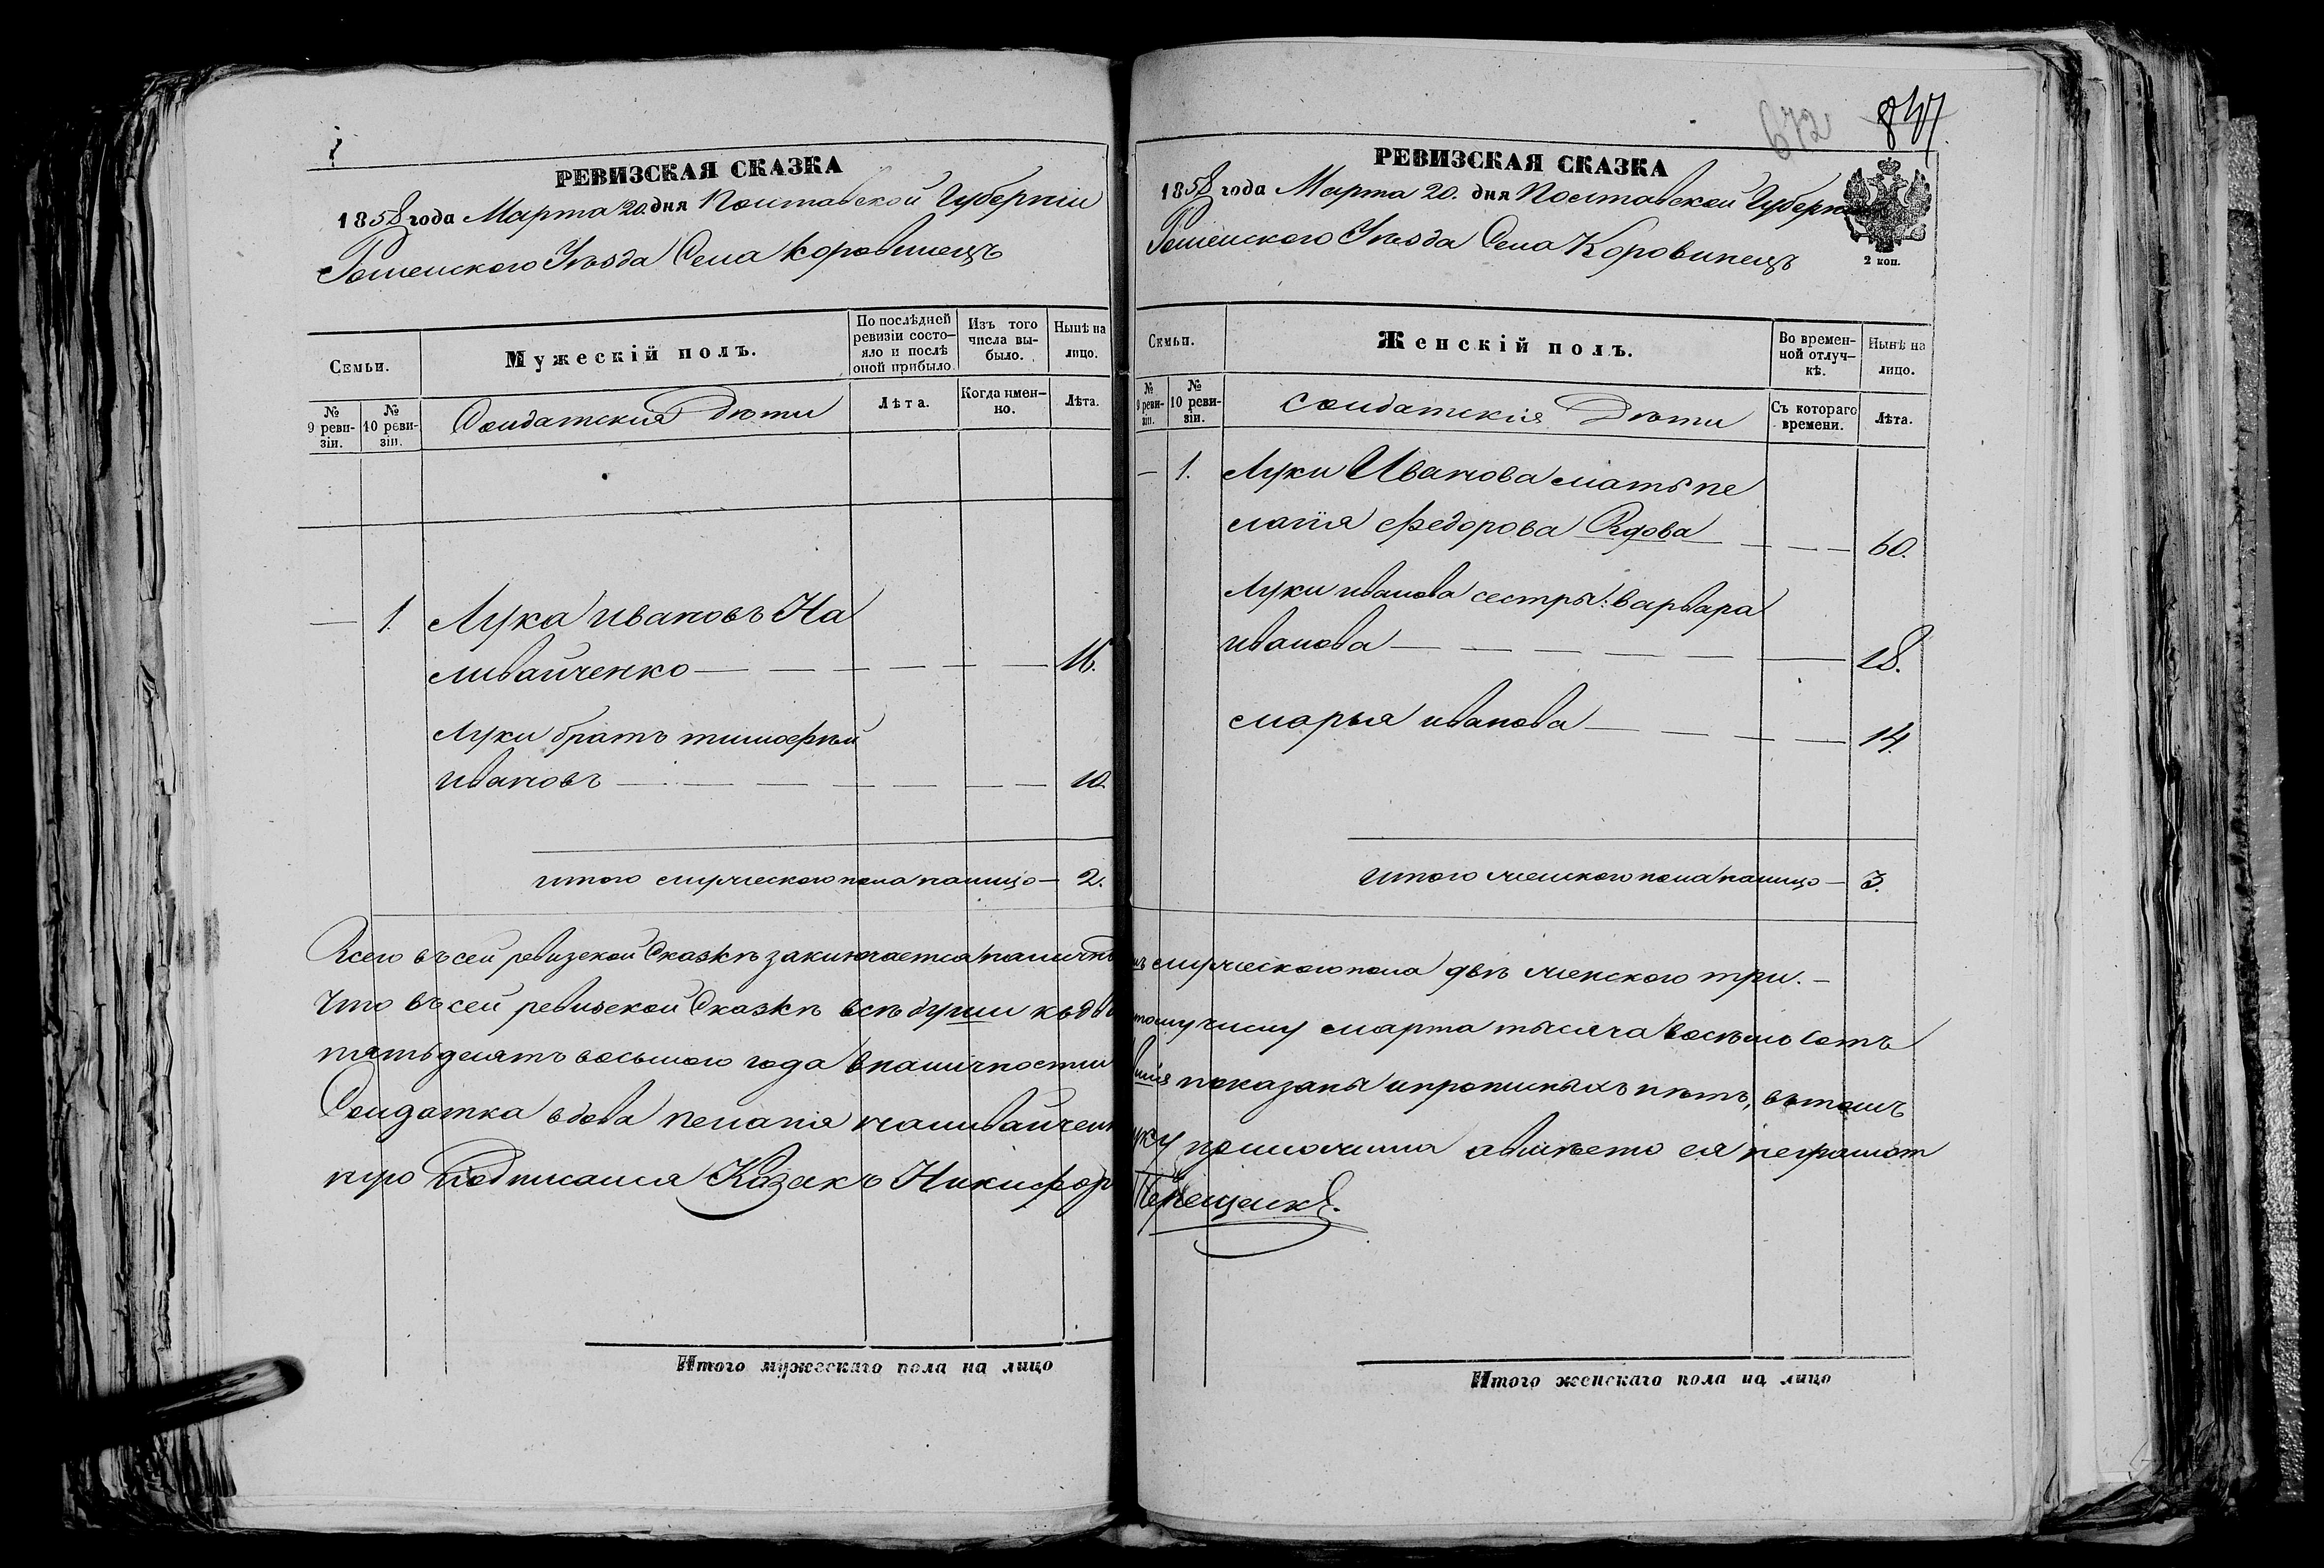 РЕВИЗСКАЯ СКАЗКА
1858 года Марта 20. дня Полтавской Губерніи
Роменского Уѣзда Села Коровинецъ
Семьи.
Мужескій полъ.
По послѣдней ревизіи состо-
яло и послѣ
оной прибыло.
Изъ того
числа вы-
было.
Нынѣ на
лицо.
№
9 реви-
зіи.
№
10 реви-
зіи.
Солдатскія Дѣти
Лѣта.
Когда имен-
но.
Лѣта.
— 1. Лука Ивановъ На
ливайченко — — — — — 16.
Луки братъ тимофѣй
ивановъ — — — — — — 10.
итого мужеского пола налицо — 2.
РЕВИЗСКАЯ СКАЗКА
672 847
1858 года Марта 20. дня Полтавской Губерніи
Роменского Уѣзда Села Коровинецъ
2 коп.
Семьи.
Женскій полъ.
Во времен-
ной отлуч-
кѣ.
Нынѣ на
лицо.
№
9 реви-
зіи.
№
10 реви-
зіи.
Солдатскія Дѣти
Съ котораго
времени.
Лѣта.
— 1. Луки Иванова мать пе
лагія Федорова Вдова — — — 60.
Луки иванова сестры: варвара
иванова — — — — — — 18.
марья иванова — — — — 14.
итого женского пола налицо — 3.
Всего въ сей ревизской Сказкѣ заключается мужеского пола двѣ женского три. —
что въ сей ревизской Сказкѣ всѣ души къ тому числу марта тысяча восѣмь сотъ
пятьдесятъ восьмого года вналичности показаны ипрописныхъ нѣтъ, въ томъ
Солдатка вдова пелагія наливайченкова руку приложила авмѣсто ея неграмот
ную Подписался Казакъ Никифор
Итого мужескаго пола на лицо
Итого женскаго пола на лицо